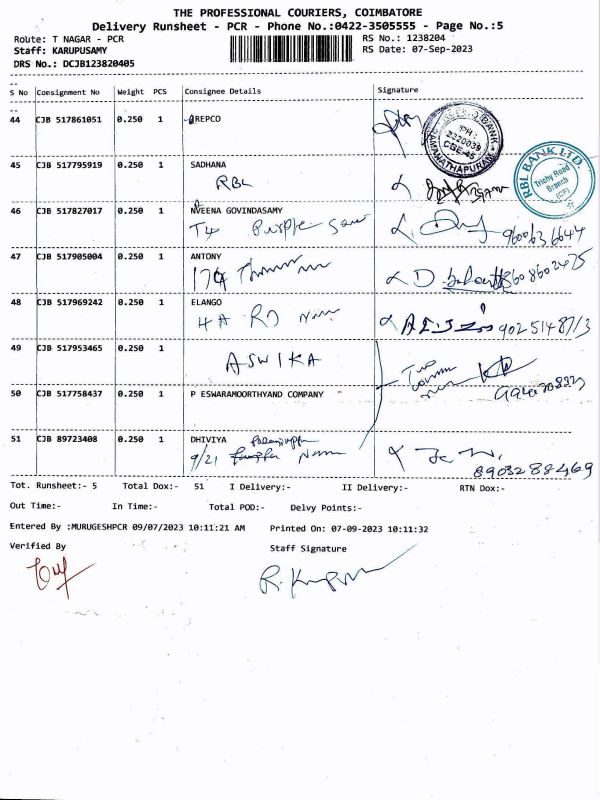 THE PROFESSIONAL COURIERS, COIMBATORE
Delivery Runsheet - PCR - Phone No.:0422-3505555 - Page No.:5
Route: T NAGAR - PCR RS No.: 1238204
Staff: KARUPUSAMY RS Date: 07-Sep-2023
DRS No.: DCJB123820405
S No Consignment No Weight PCS Consignee Details Signature
44 CJB 517861051 0.250 1 REPCO
PH: 2320039 CBE-45
45 CJB 517795919 0.250 1 SADHANA
RBL
RBL BANK LTD. Trichy Road Branch (CF)
46 CJB 517827017 0.250 1 NVEENA GOVINDASAMY
T4 Purple 9600636644
47 CJB 517905004 0.250 1 ANTONY
179
48 CJB 517969242 0.250 1 ELANGO
4A RD 9025148713
49 CJB 517953465 0.250 1
ASWIKA
50 CJB 517758437 0.250 1 P ESWARAMOORTHYAND COMPANY
51 CJB 89723408 0.250 1 DHIVIYA
9/21 8903288469
Tot. Runsheet:- 5 Total Dox:- 51 I Delivery:- II Delivery:- RTN Dox:-
Out Time:- In Time:- Total POD:- Delvy Points:-
Entered By :MURUGESHPCR 09/07/2023 10:11:21 AM Printed On: 07-09-2023 10:11:32
Verified By Staff Signature